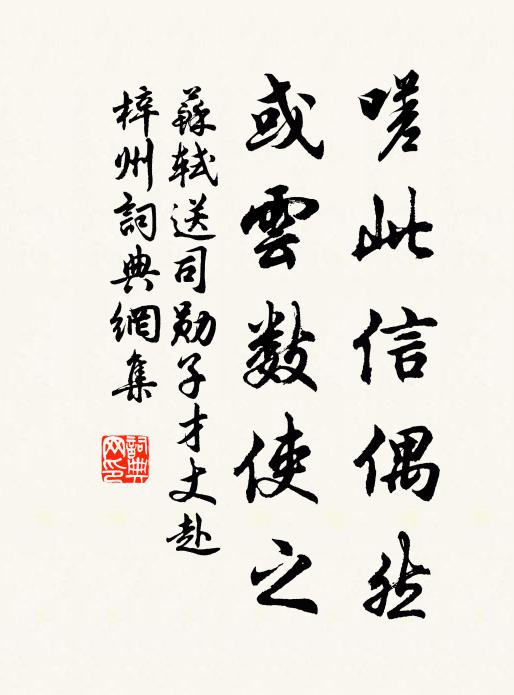 嗟此信偶然
或雲数使之
蘇軾送司勋子才丈赴
梓州詞典網集
詞典网印